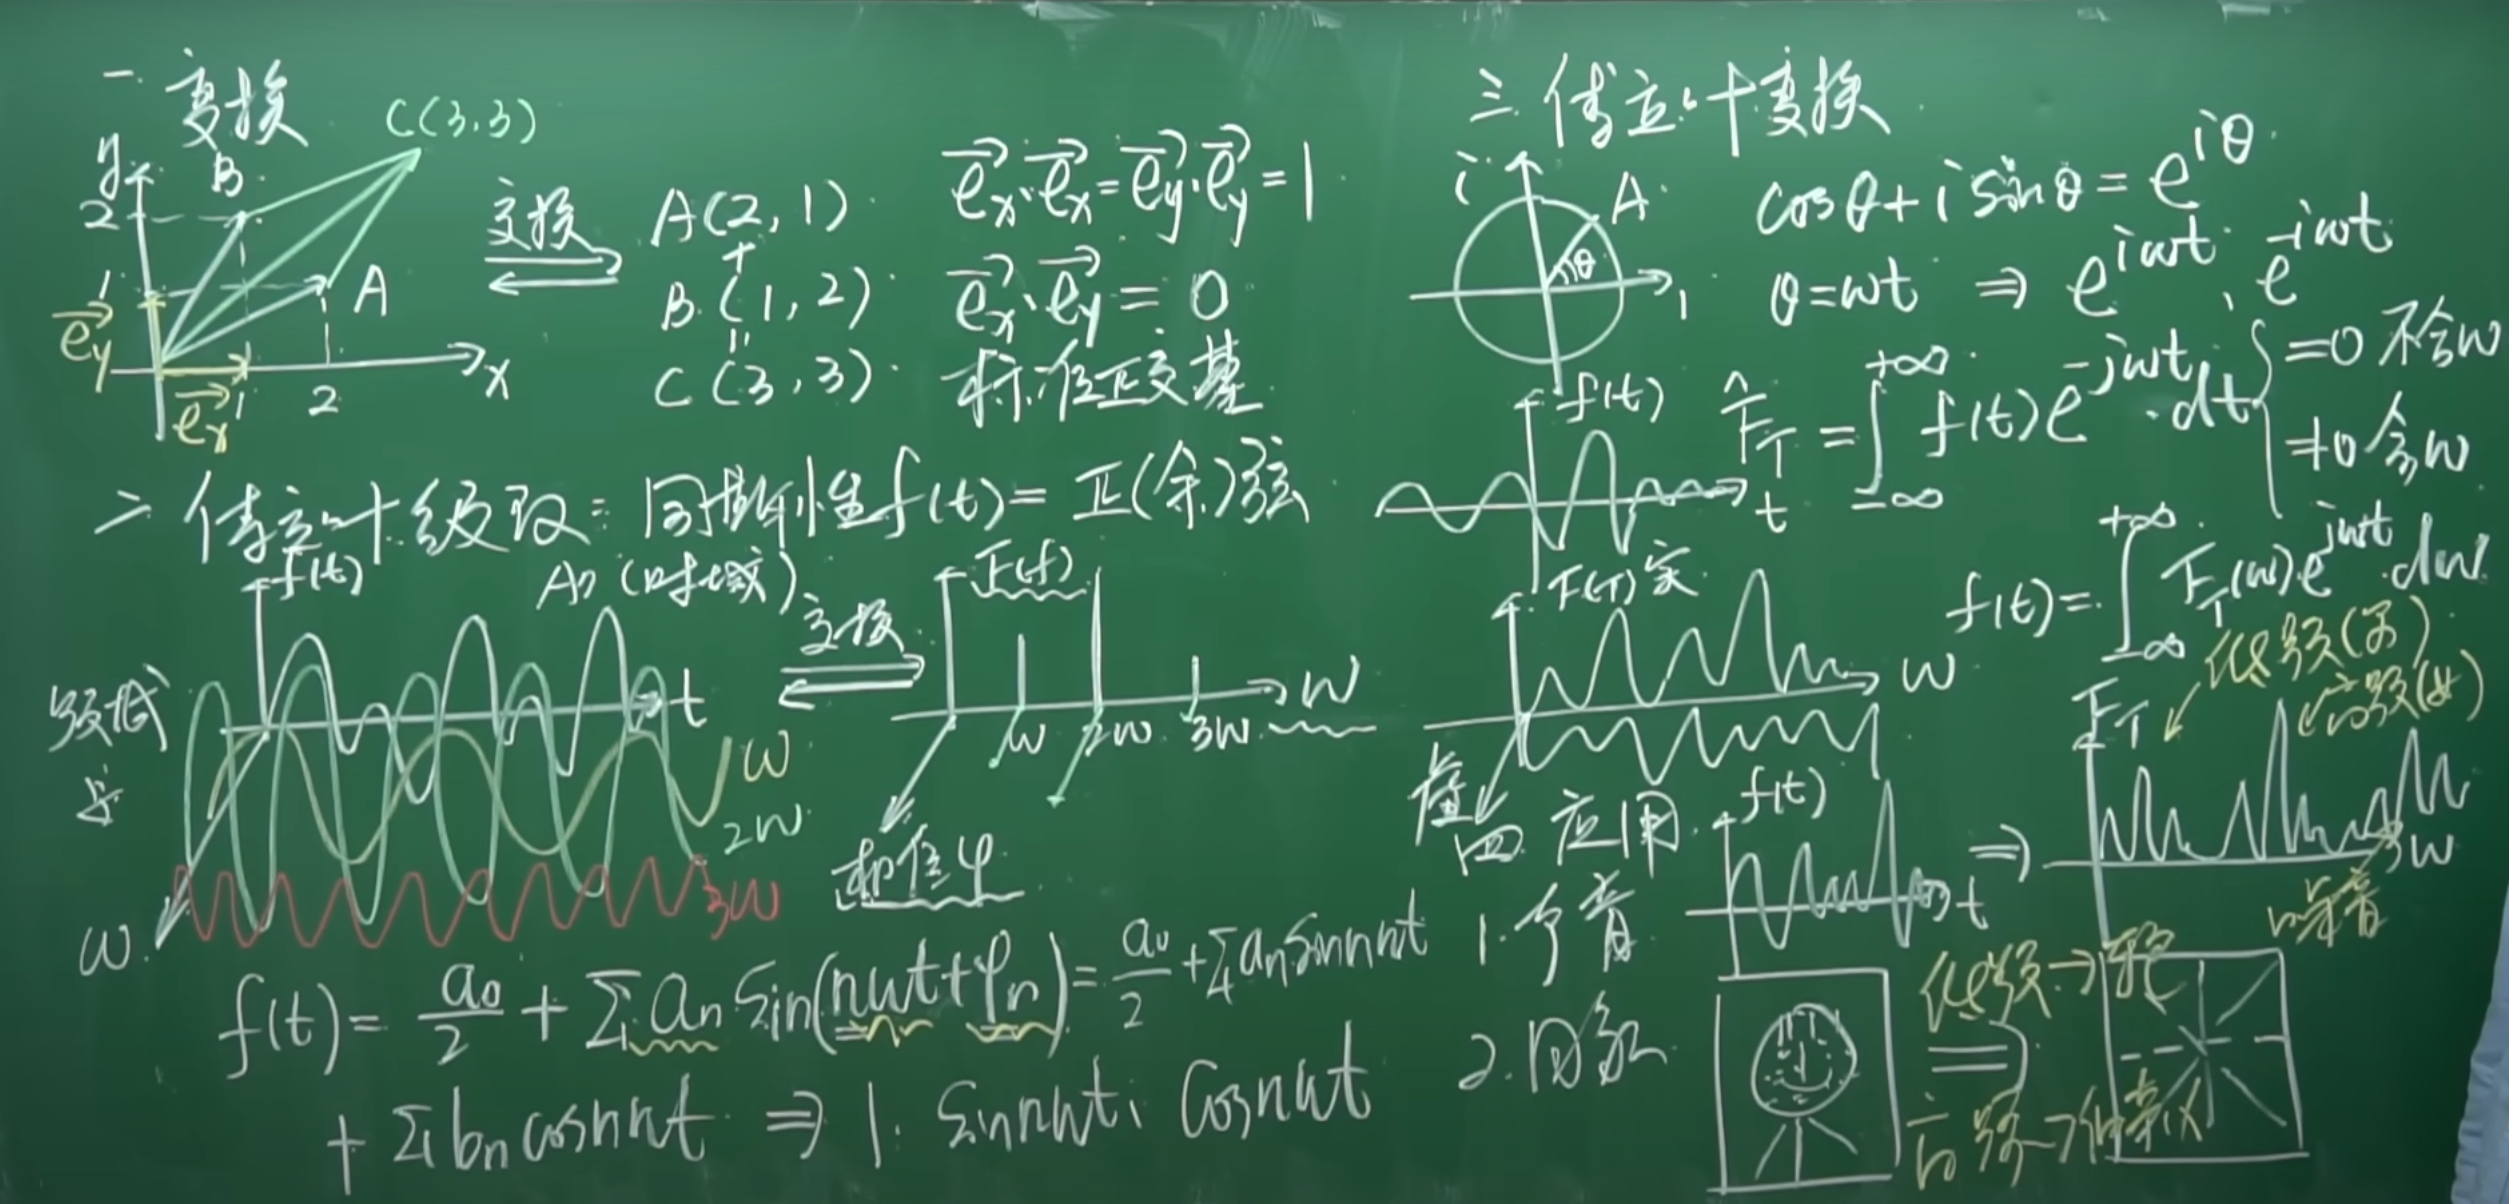 一. 变换
C(3,3)
y
B
2
1
A
e⃗y
e⃗x
1
2
x
变换
A(2,1)
+
B(1,2)
=
C(3,3)
e⃗x·e⃗x=e⃗y·e⃗y=1
e⃗x·e⃗y=0
标准正交基
二 傅立叶级数: 周期性f(t)=正(余)弦
f(t)
An (时域)
t
频域
ω
2ω
3ω
ω
变换
F(f)
ω
ω 2ω 3ω
相位φ
f(t)= a₀/2 + Σ an Sin(nωt+φn)= a₀/2 +Σ an Sinnωt
+ Σ bn cosnωt ⇒ 1. Sinnωt, Cosnωt
三 傅立叶变换
i
A
θ
1
cosθ+i sinθ=e^{iθ}
θ=ωt ⇒ e^{iωt}, e^{-iωt}
f(t)
t
F̂_T = ∫_{-∞}^{+∞} f(t)e^{-jωt}·dt
=0 不含ω
≠0 含ω
F(T) 实
ω
虚
f(t)= ∫_{-∞}^{+∞} F_T(ω)e^{jωt}·dω
四. 应用
1.
f(t)
t
⇒
F_T
低频(男)
高频(女)
ω
噪音
2.
低频→
高频→